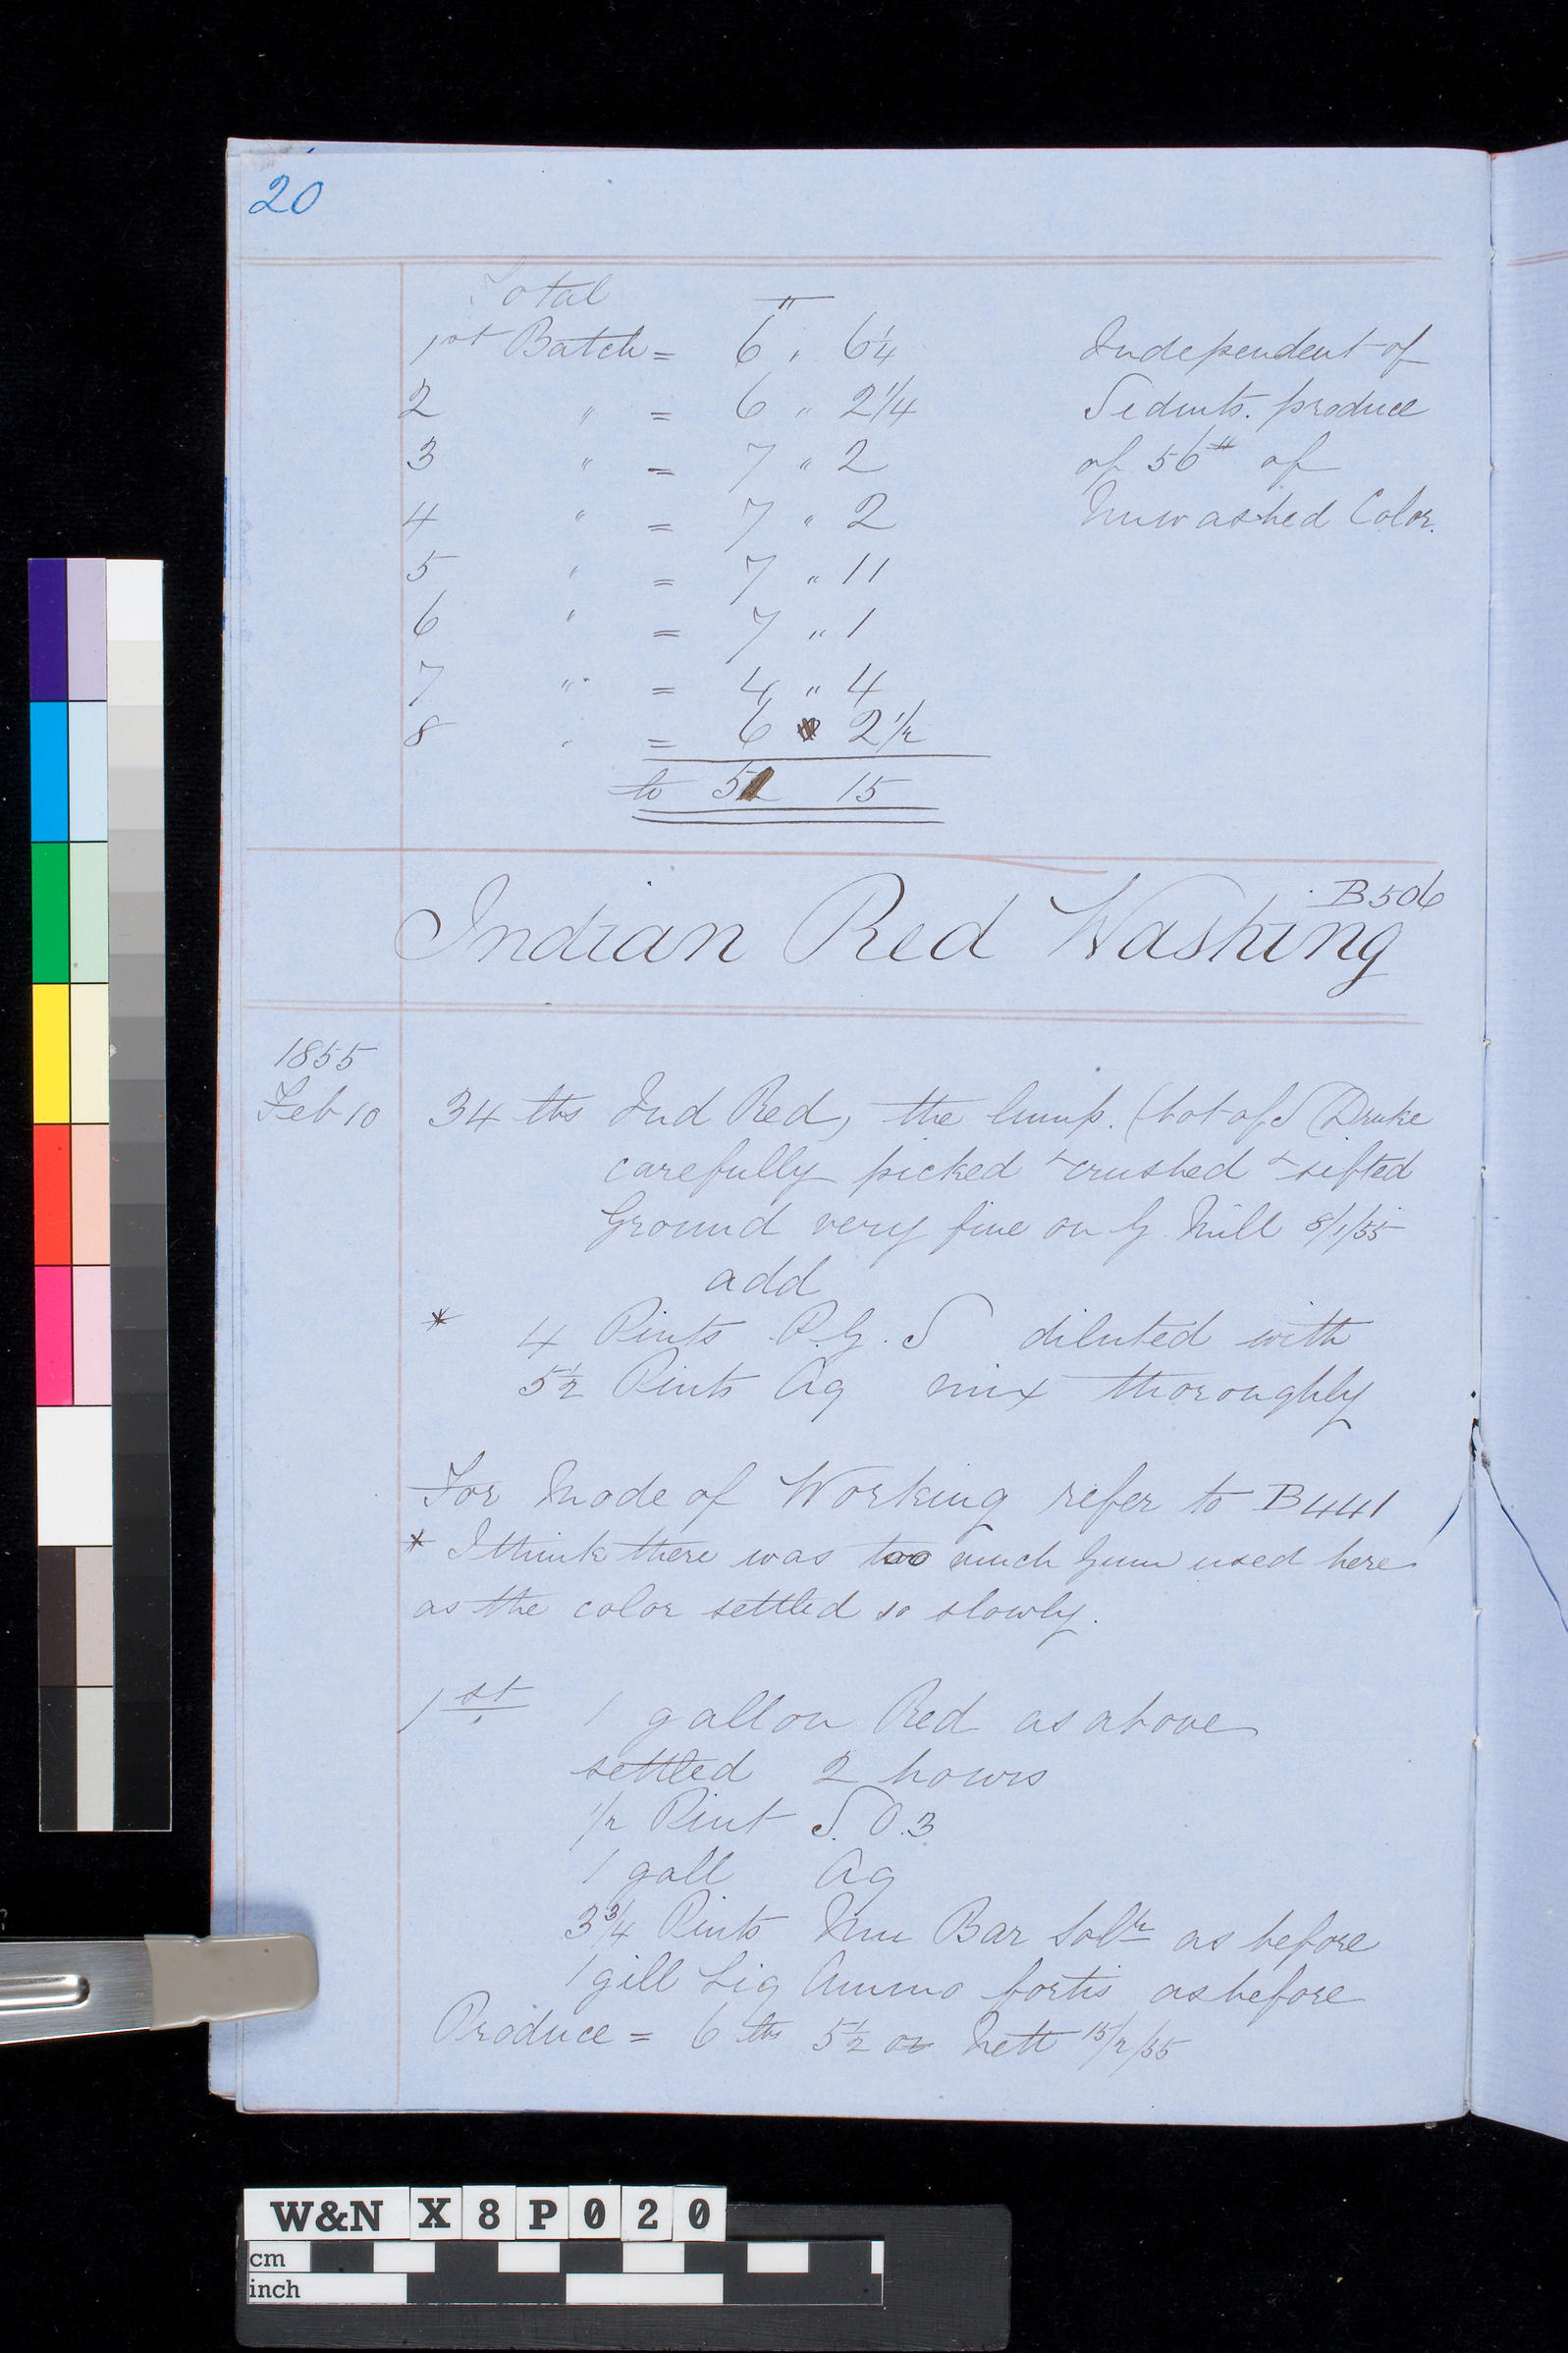 20
Total
1st Batch = 6 " 6 1/4 Independent of
2 " = 6 " 2 1/4 Sedmts. produce
3 " = 7 " 2 of 56 # of
4 " = 7 " 2 Unwashed Color.
5 " = 7 " 11
6 " = 7 " 1
7 " = 4 " 4
8 " = 6 " 2 1/2
lb 51 15
B506
Indian Red Washing
1855
Feb 10 34 lbs Ind Red, the lump. (bot of S Druke
carefully picked & crushed & sifted
Ground very fine on G Mill 8/1/55
add
* 4 Pints P.G.S diluted with
5 1/2 Pints Aq mix thoroughly
For Mode of Working refer to B441
* I think there was too much Gum used here
as the color settled so slowly.
1st 1 gallon Red as above
settled 2 hours
1/2 Pint S.O.3
1 gall Aq
3 3/4 Pints Mu Bar Soltn as before
1 gill Liq Ammo fortis as before
Produce = 6 lbs 5 1/2 oz Nett 15/2/55
W&N X8P020
cm
inch